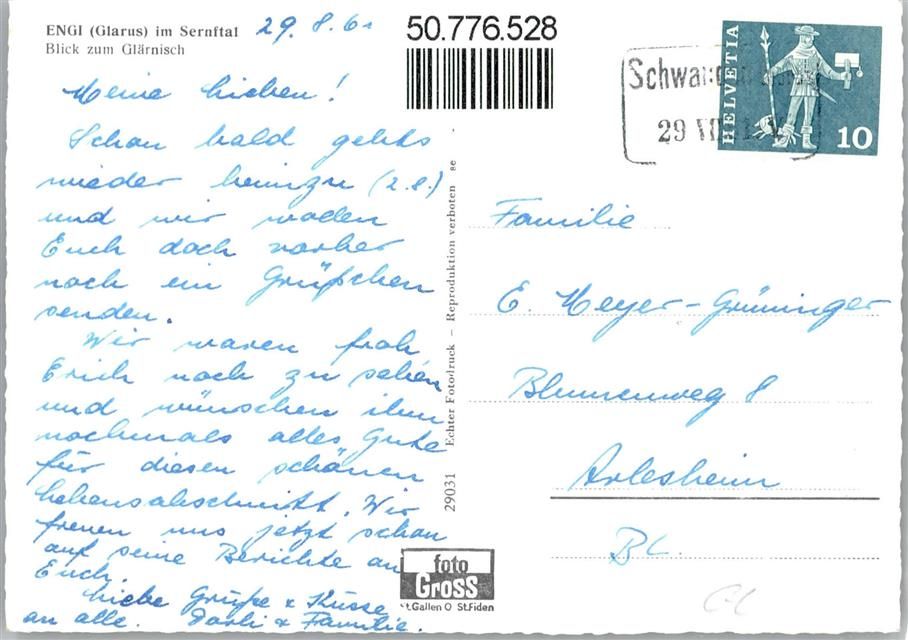 ENGI (Glarus) im Sernftal
Blick zum Glärnisch
29. 8. 6
50.776.528
Schwanden
29 VII
HELVETIA
10
Meine Lieben!
Schon bald gehts
wieder heimzu (2.8.)
und wir woden
Euch doch vorher
noch ein Grüßchen
senden.
Wir waren froh
Erich noch zu sehen
und wünschen ihm
nochmals alles Gute
für diesen schönen
Lebensabschnitt. Wir
freuen uns jetzt schon
auf seine Berichte an
Euch.
Liebe Grüße + Küsse
an alle. + Familie.
29031 Echter Fotodruck – Reproduktion verboten se
foto
Gross
St.Gallen O St.Fiden
Familie
E. Meyer-Grüninger
Blumenweg 8
Arlesheim
BL.